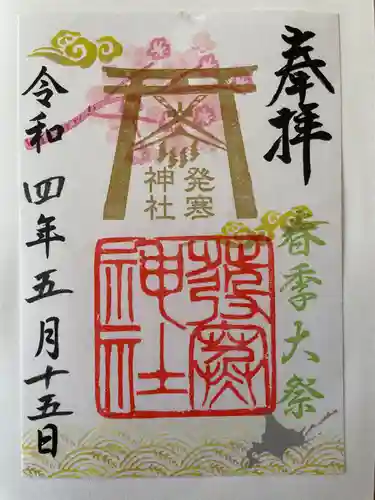 奉拝
春季大祭
発寒
神社
発寒
神社
令和四年五月十五日